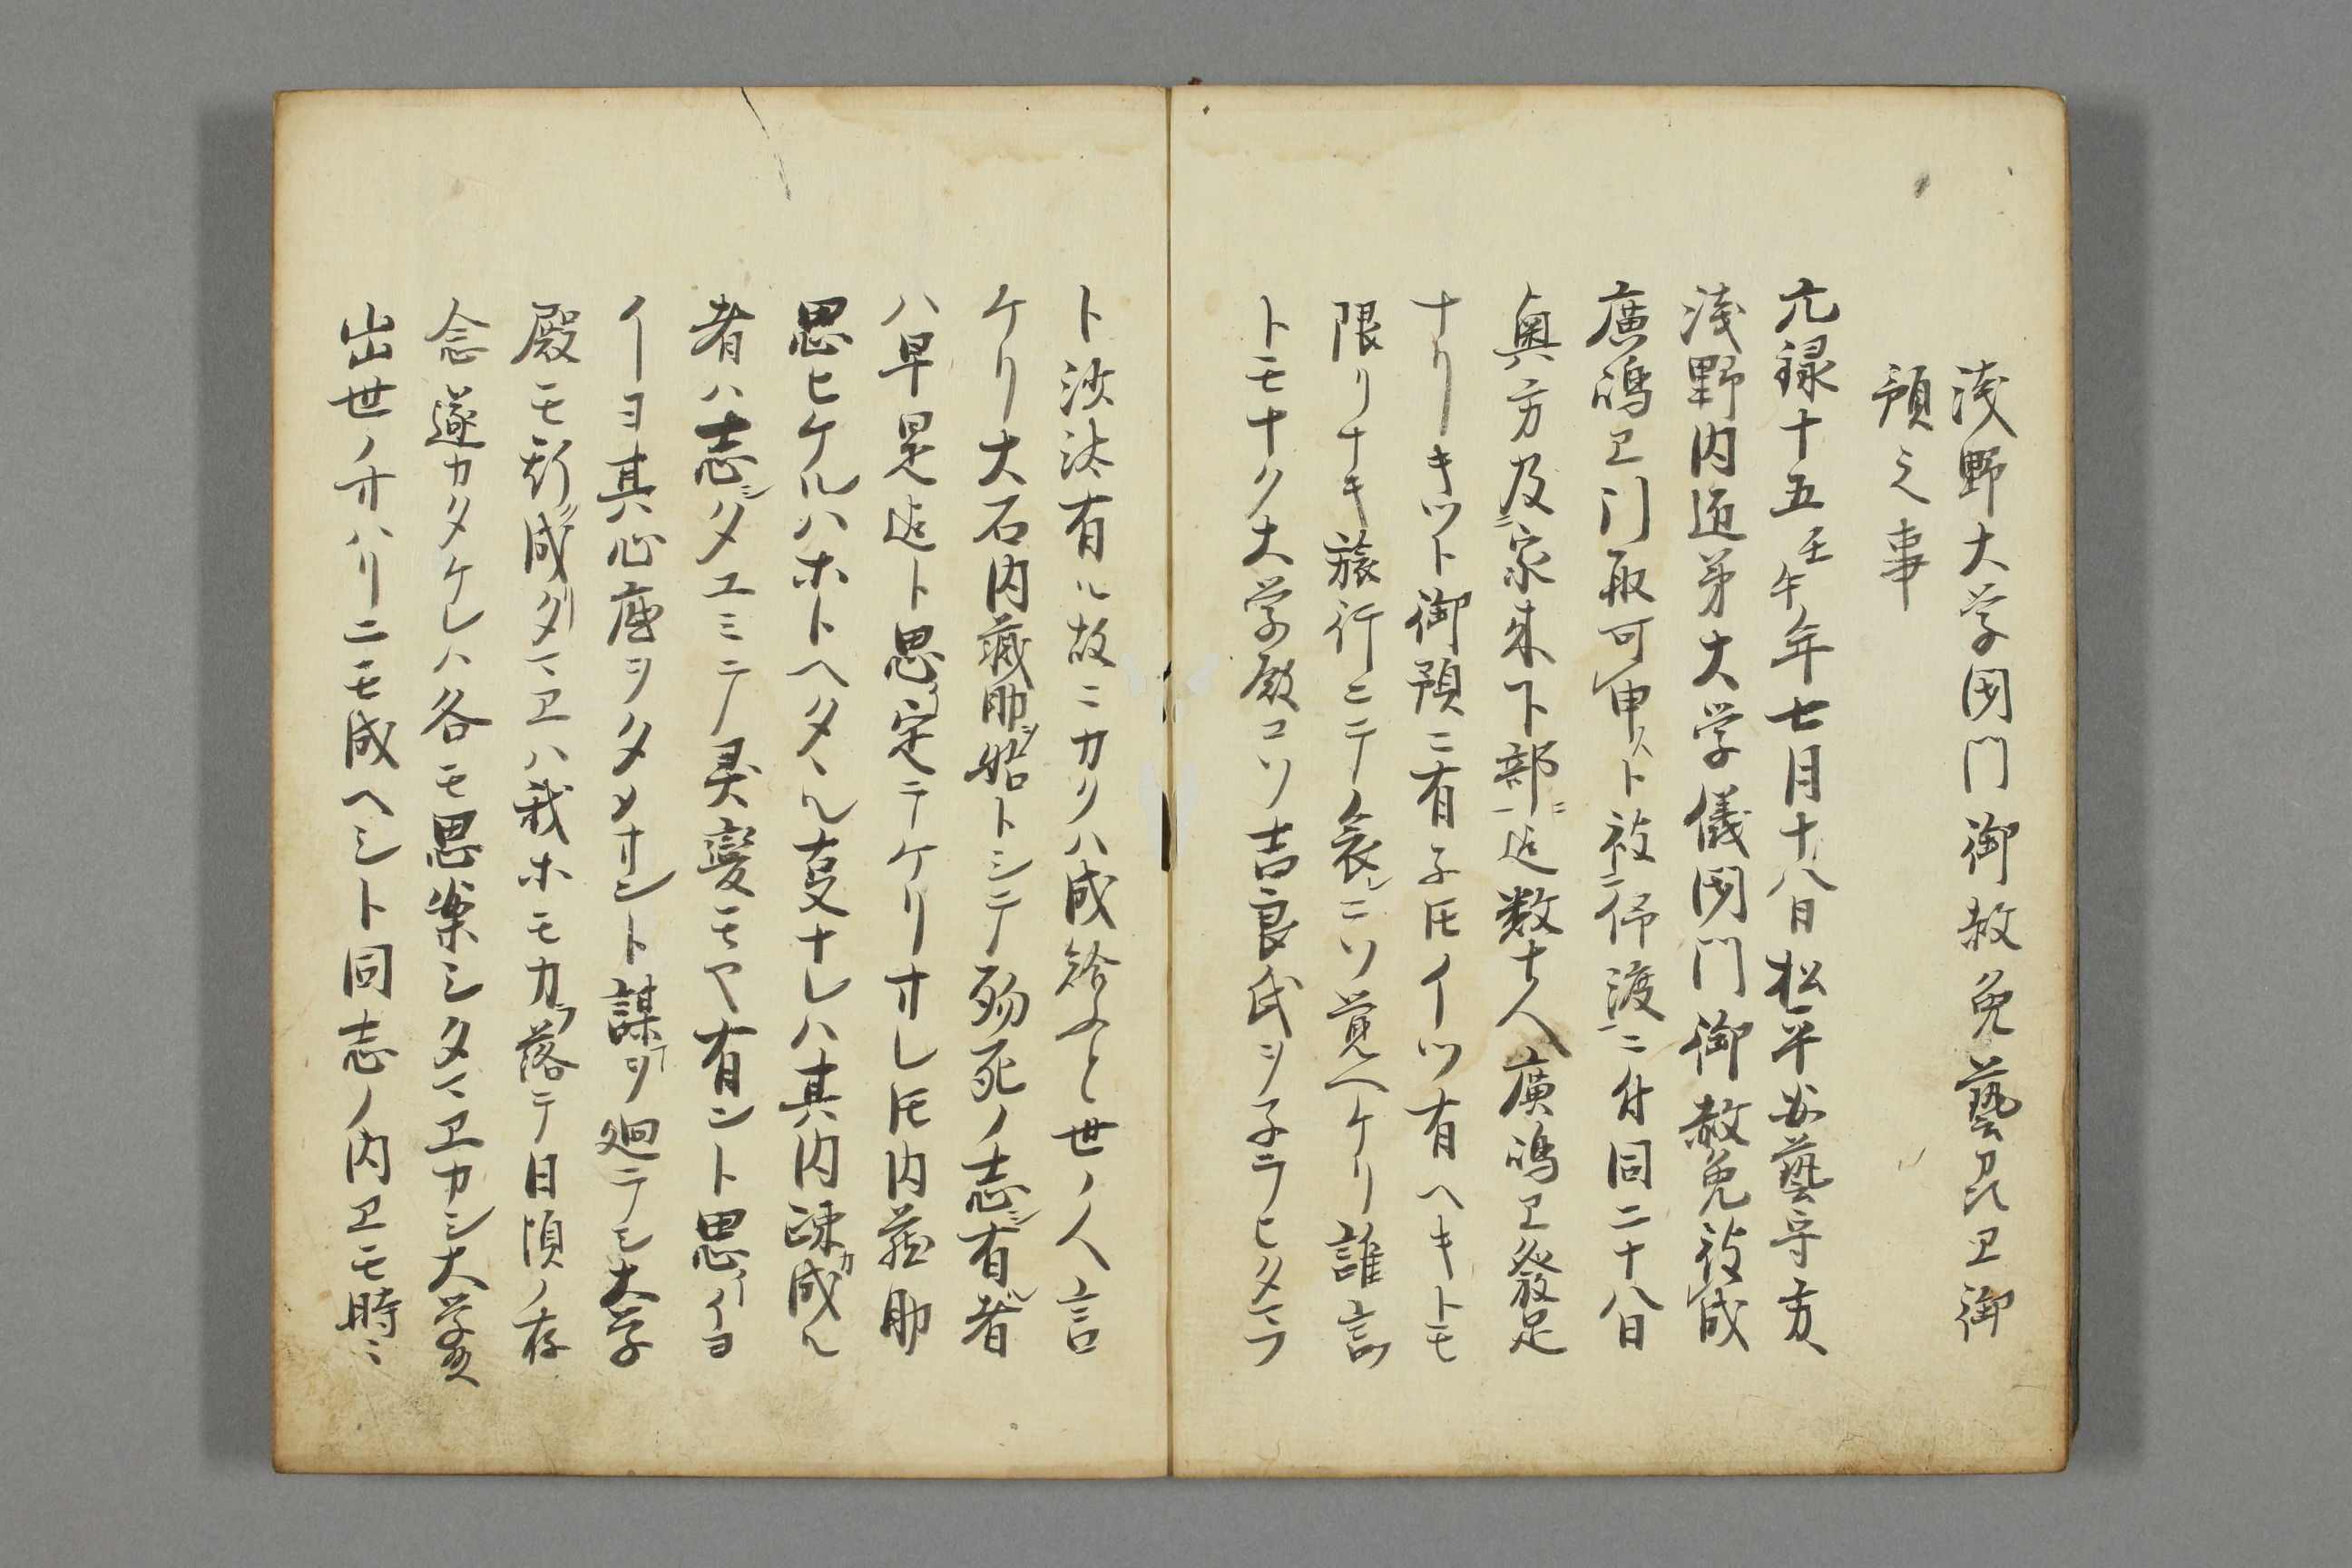 浅野大学閉門御赦免藝州ヱ御
預之事
元禄十五壬午年七月十八日松平安藝守方
浅野内匠弟大学儀閉門御赦免被成
廣嶋ヱ引取可申ト被仰渡ニ付同二十八日
奥方及家来下部迄数十人廣嶋ヱ發足
ナリキツト御預ニ有子𪜈イツ有ヘキトモ
限リナキ旅行ニテ哀ニソ覚ヘケリ誰言
トモナク大学殿コソ吉良氏ヲ子ラヒタマフ
ト沙汰有ル故ニカクハ成給フト世ノ人言
ケリ大石内蔵助始トシテ殉死ノ志シ有ル者
ハ早是迄ト思定テケリサレ𪜈内蔵助
思ヒケルハホトヘタヽル叓ナレハ其内疎カ成ル
者ハ志シタユミテ異変モヤ有ント思イイヨ
イヨ其心底ヲタメサント謀ヲ廻ラシ大学
殿モ斯成タマヱハ我ホモ力ラ落テ日頃ノ存
念遂カタケレハ各モ思案シタマヱカシ大学殿
出世ノオハリニモ成ヘシト同志ノ内ヱモ時ニ